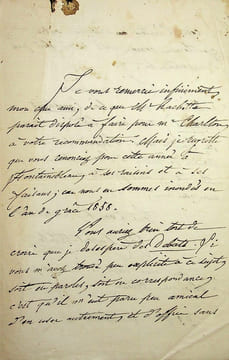 Je vous remercie infiniment,
mon cher ami, de ce que Mr Hachette
parait disposé à faire pour Mr Charlton,
à votre recommandation. Mais je regrette
que vous renonciez pour cette année à
Fontainebleau, à ses raisins et à ses
faisans; car nous en sommes inondés en
l'an de grâce 1858.
Vous auriez bien tort de
croire que je désespère des Débats. Si
vous m'avez trouvé peu explicite à ce sujet,
soit en paroles, soit en correspondance,
c'est qu'il m'eut paru peu amical
d'en user autrement, et d'offrir sans